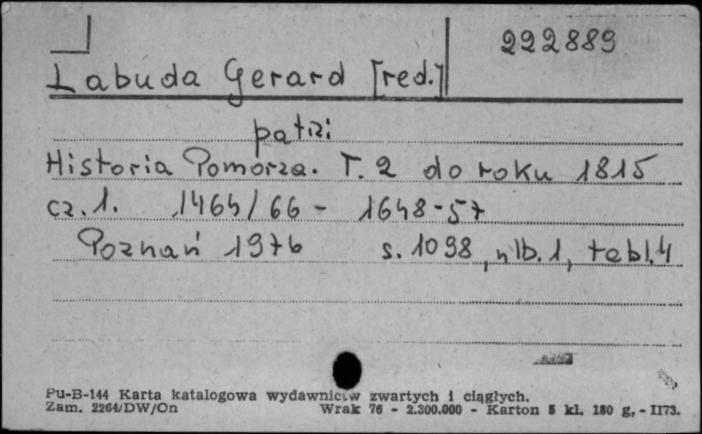 222889
Labuda Gerard [red.]
patrz:
Historia Pomorza. T. 2 do roku 1815
cz. 1. 1464/66 - 1648-57
Poznań 1976 s. 1098, nlb. 1, tabl. 4
Pu-B-144 Karta katalogowa wydawnictw zwartych i ciągłych.
Zam. 2264/DW/On Wrak 76 - 2.300.000 - Karton 5 kl. 180 g, - II73.